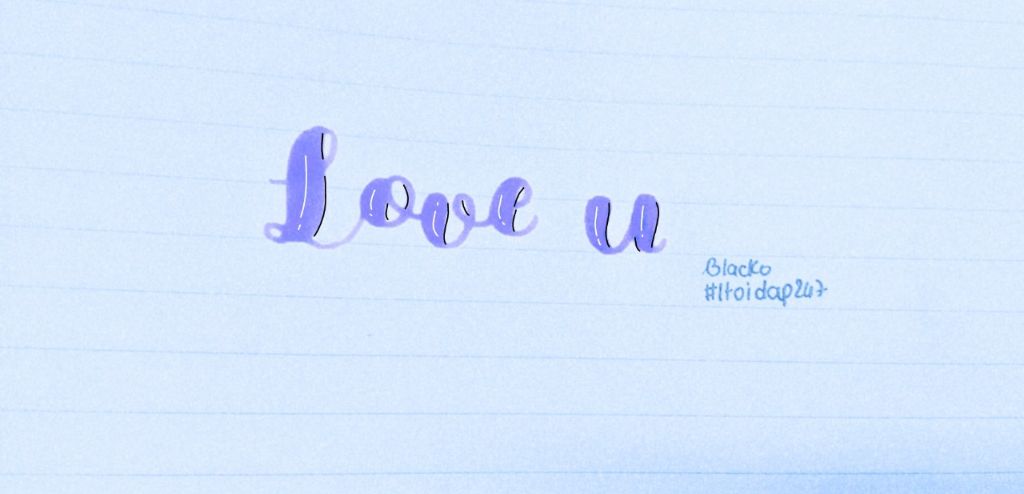 Love u
Blacko
#1toidap247